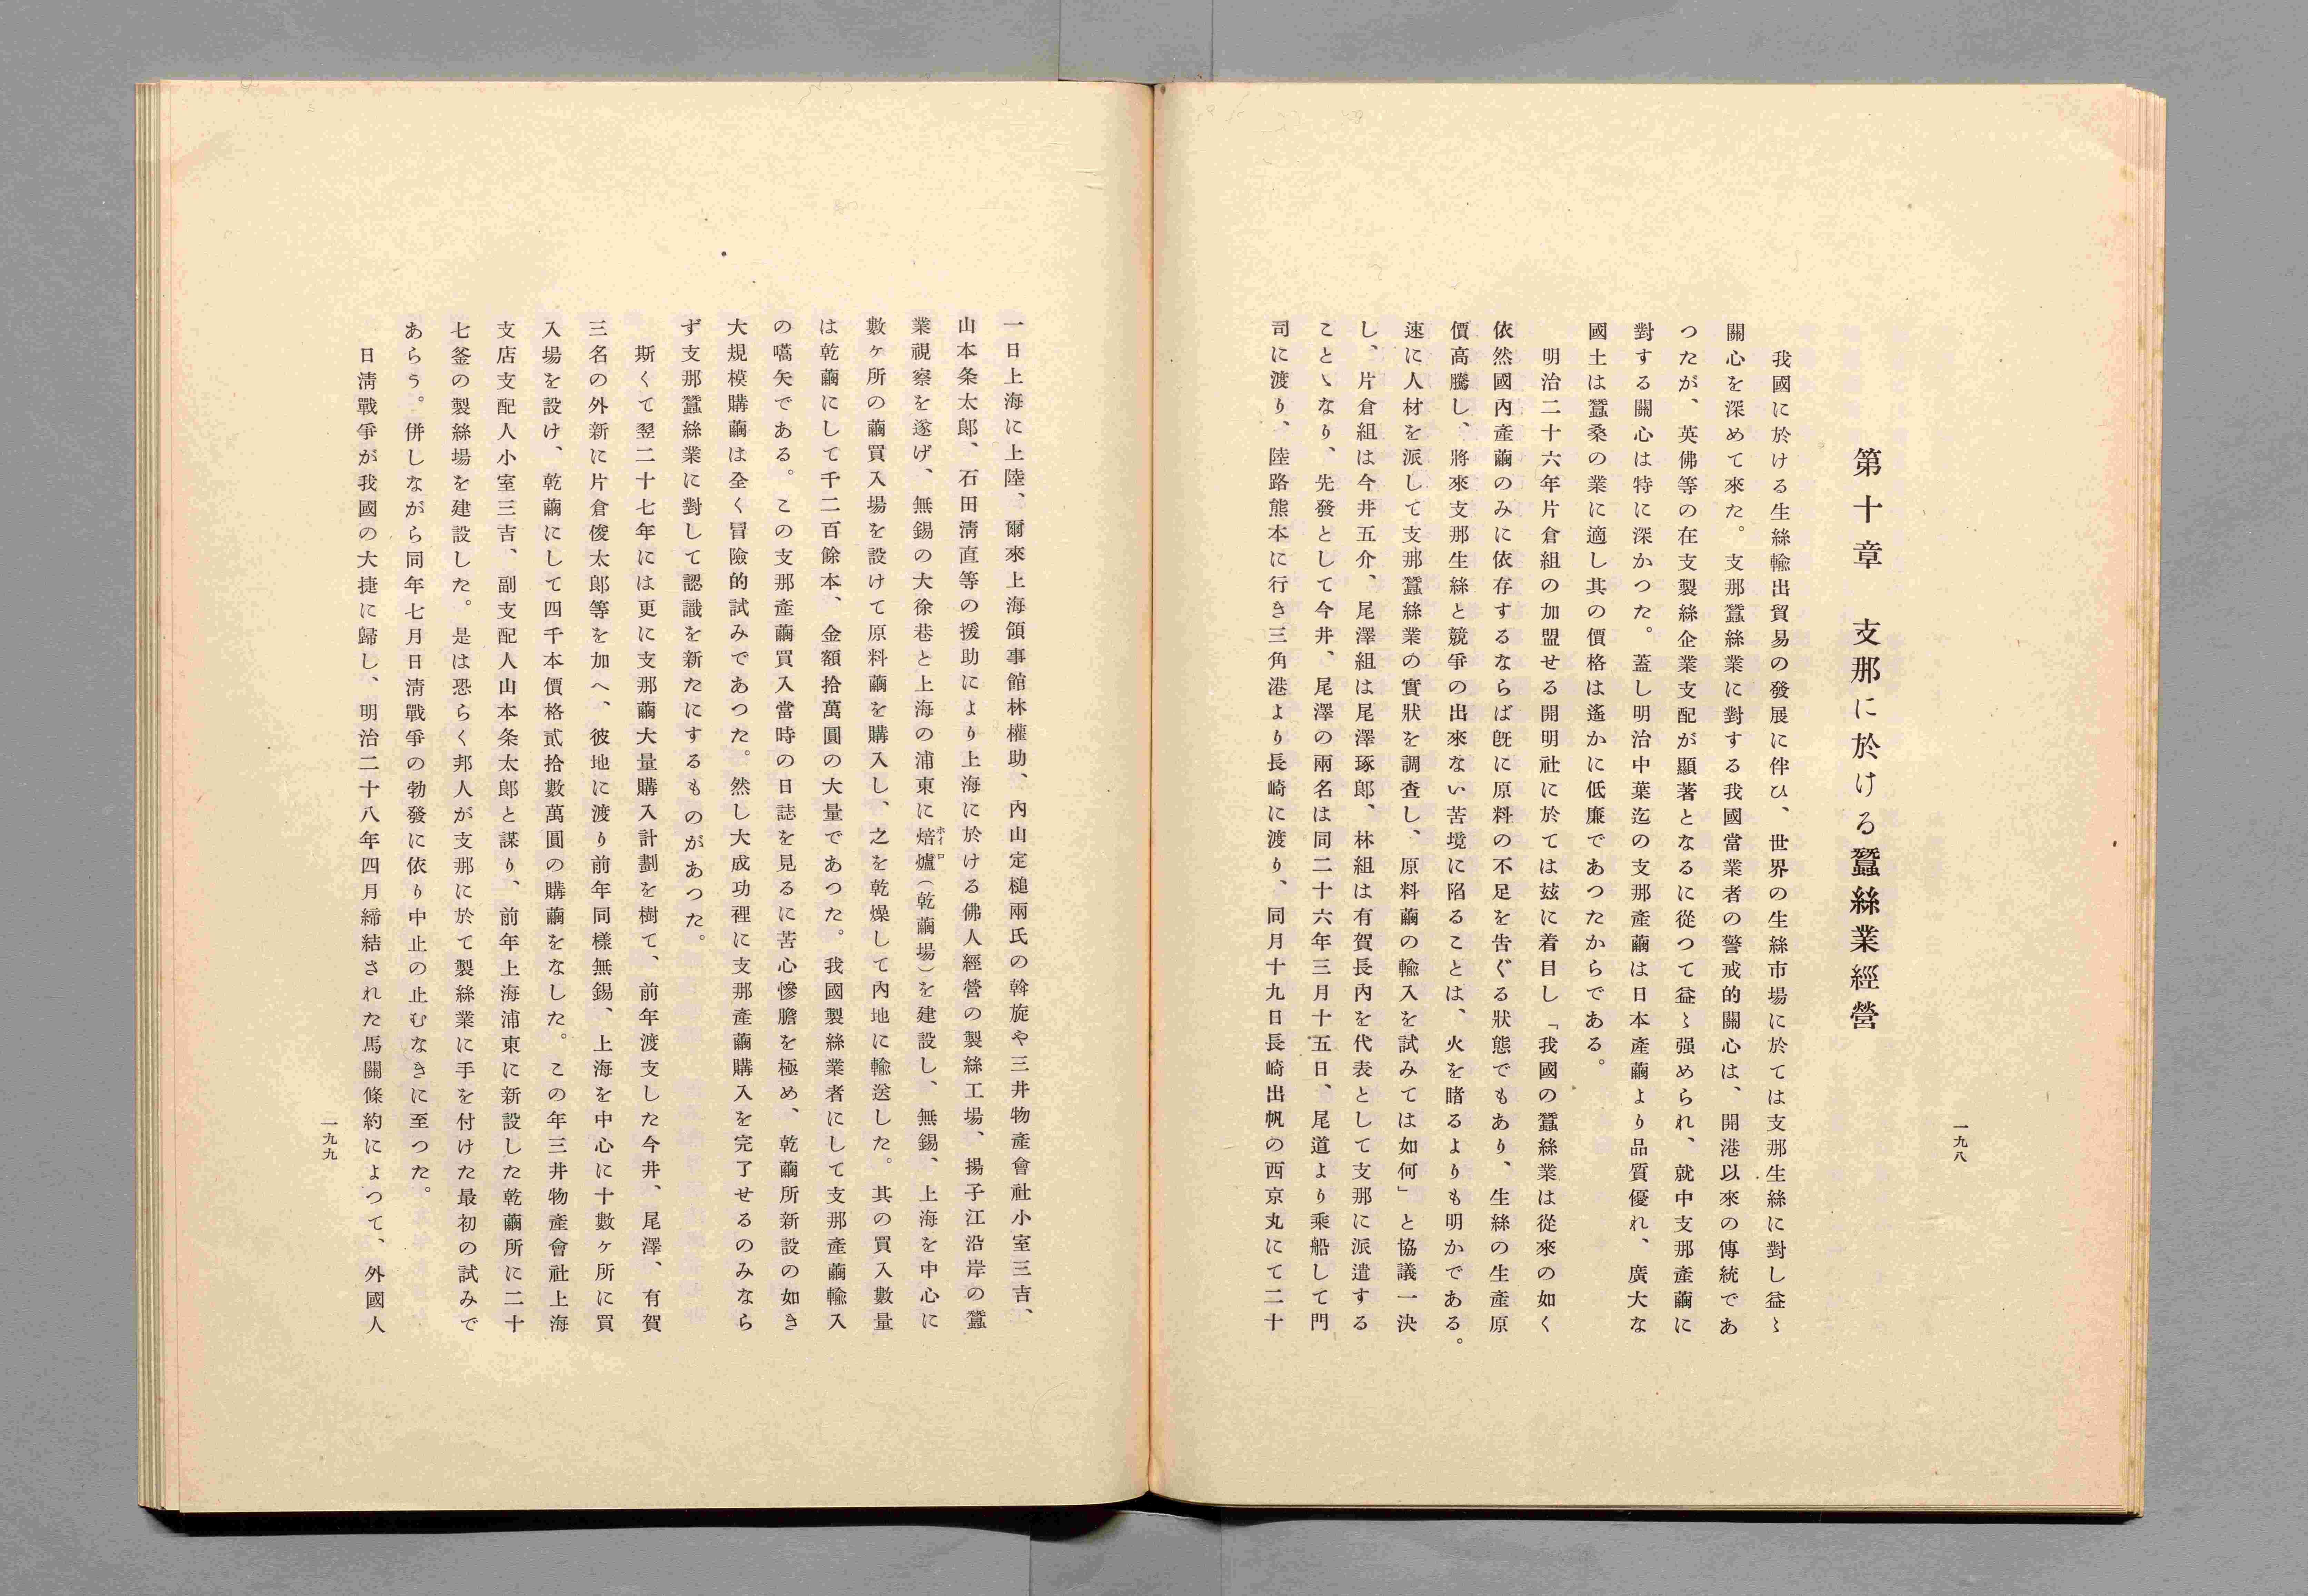 一九八
第十章　支那に於ける蠶絲業經營
我國に於ける生絲輸出貿易の發展に伴ひ、世界の生絲市場に於ては支那生絲に對し益〻
關心を深めて來た。支那蠶絲業に對する我國當業者の警戒的關心は、開港以來の傳統であ
つたが、英佛等の在支製絲企業支配が顯著となるに從つて益〻强められ、就中支那產繭に
對する關心は特に深かつた。蓋し明治中葉迄の支那產繭は日本產繭より品質優れ、廣大な
國土は蠶桑の業に適し其の價格は遙かに低廉であつたからである。
明治二十六年片倉組の加盟せる開明社に於ては玆に着目し「我國の蠶絲業は從來の如く
依然國內產繭のみに依存するならば旣に原料の不足を告ぐる狀態でもあり、生絲の生產原
價高騰し、將來支那生絲と競爭の出來ない苦境に陷ることは、火を睹るよりも明かである。
速に人材を派して支那蠶絲業の實狀を調査し、原料繭の輸入を試みては如何」と協議一決
し、片倉組は今井五介、尾澤組は尾澤琢郎、林組は有賀長內を代表として支那に派遣する
ことゝなり、先發として今井、尾澤の兩名は同二十六年三月十五日、尾道より乘船して門
司に渡り、陸路熊本に行き三角港より長崎に渡り、同月十九日長崎出帆の西京丸にて二十
一日上海に上陸、爾來上海領事館林權助、內山定槌兩氏の斡旋や三井物產會社小室三吉、
山本条太郎、石田淸直等の援助により上海に於ける佛人經營の製絲工場、揚子江沿岸の蠶
業視察を遂げ、無錫の大徐巷と上海の浦東に焙爐（乾繭場）を建設し、無錫、上海を中心に
ホイロ
數ヶ所の繭買入場を設けて原料繭を購入し、之を乾燥して內地に輸送した。其の買入數量
は乾繭にして千二百餘本、金額拾萬圓の大量であつた。我國製絲業者にして支那產繭輸入
の嚆矢である。この支那產繭買入當時の日誌を見るに苦心慘膽を極め、乾繭所新設の如き
大規模購繭は全く冒險的試みであつた。然し大成功裡に支那產繭購入を完了せるのみなら
ず支那蠶絲業に對して認識を新たにするものがあつた。
斯くて翌二十七年には更に支那繭大量購入計劃を樹て、前年渡支した今井、尾澤、有賀
三名の外新に片倉俊太郎等を加へ、彼地に渡り前年同樣無錫、上海を中心に十數ヶ所に買
入場を設け、乾繭にして四千本價格貳拾數萬圓の購繭をなした。この年三井物產會社上海
支店支配人小室三吉、副支配人山本条太郎と謀り、前年上海浦東に新設した乾繭所に二十
七釜の製絲場を建設した。是は恐らく邦人が支那に於て製絲業に手を付けた最初の試みで
あらう。併しながら同年七月日淸戰爭の勃發に依り中止の止むなきに至つた。
日淸戰爭が我國の大捷に歸し、明治二十八年四月締結された馬關條約によつて、外國人
一九九